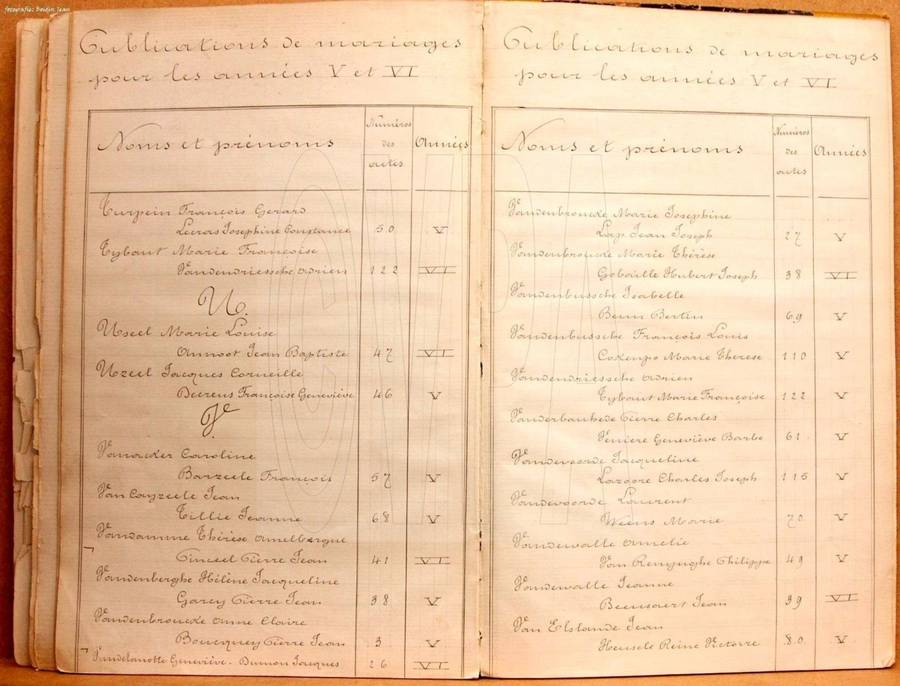 fotografie: Boidin Jean
Publications de mariages
pour les années V et VI
Noms et prénoms
Numéros
des
actes
Années
Turpein François Gerard
Leuras Josephine Constance 50 V
Tybaut Marie Françoise
Vandendriessche Adrien 122 VI
U.
Useel Marie Louise
Annoot Jean Baptiste 47 VI
Uzeel Jacques Corneille
Beerens Françoise Geneviève 46 V
V
Vanacker Caroline
Barzeele François 57 V
Van Cayzeele Jean
Tillie Jeanne 68 V
Vandamme Thérèse Amelbergue
Pinceel Pierre Jean 41 VI
Vandenberghe Hélène Jacqueline
Garey Pierre Jean 38 V
Vandenbroucke Anne Claire
Boucquey Pierre Jean 3 V
Vandelanotte Geneviève - Dumon Jacques 26 VI
Publications de mariages
pour les années V et VI
Noms et prénoms
Numéros
des
actes
Années
Vandenbroucke Marie Josephine
Lap Jean Joseph 27 V
Vandenbroucke Marie Thérèse
Gobaille Hubert Joseph 38 VI
Vandenbussche Isabelle
Beun Bertin 69 V
Vandenbussche François Louis
Coxenpo Marie Therese 110 V
Vandendriessche Adrien
Tybaut Marie Françoise 122 V
Vanderbauhede Pierre Charles
Veniere Geneviève Barbe 61 V
Vandevoorde Jacqueline
Lazoore Charles Joseph 115 V
Vandevoorde Laurent
Weens Marie 70 V
Vandewalle Amelie
Van Renynghe Philippe 49 V
Vandewalle Jeanne
Beensaert Jean 39 VI
Van Elslande Jean
Heusele Reine Victoire 80 V